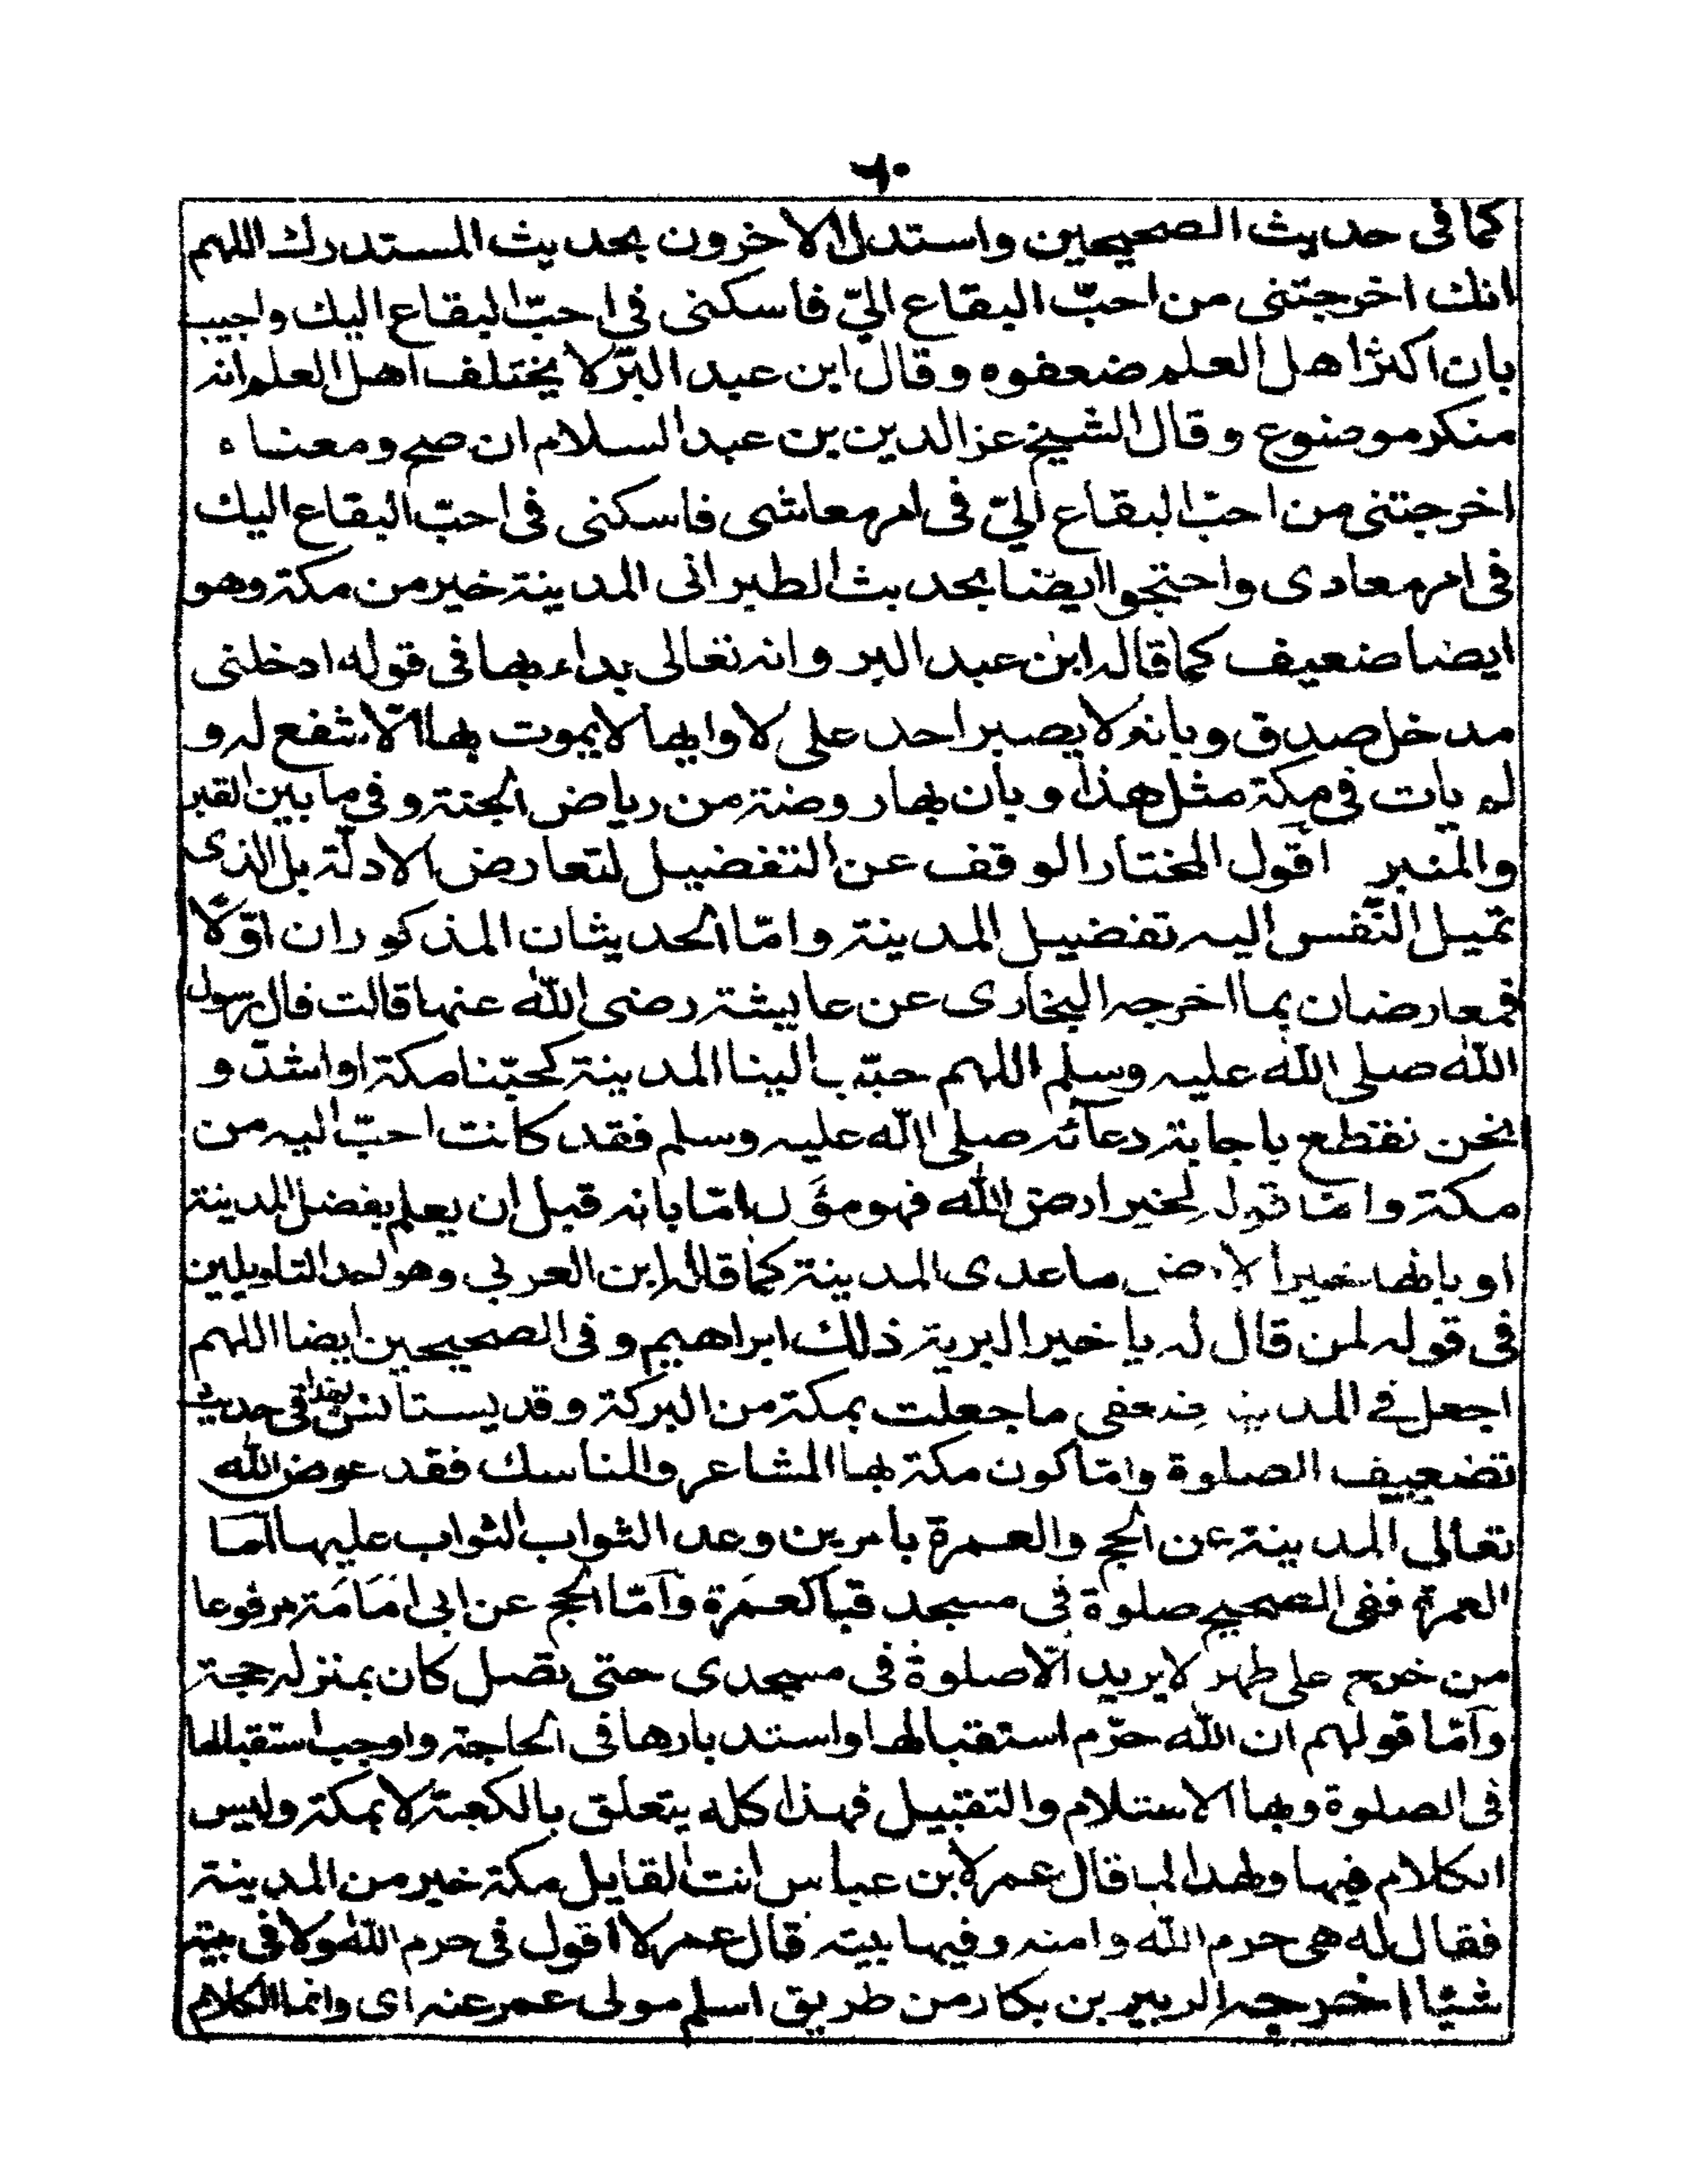 ٦٠
كما فى حديث الصحيحين واستدل الاخرون بحديث المستدرك اللهم
انك اخرجتنى من احبّ البقاع اليّ فاسكنى في احبّ البقاع اليك واجيب
بان اكثر اهل العلم ضعفوه وقال ابن عبد البرّ لا يختلف اهل العلم انه
منكر موضوع وقال الشيخ عز الدين بن عبد السلام ان صح ومعناء
اخرجتنى من احبّ البقاع اليّ فى امر معاشى فاسكنى فى احبّ البقاع اليك
فى امر معادى واحتجوا ايضا بحديث الطبرانى المدينة خير من مكة وهو
ايضا ضعيف كما قاله ابن عبد البر وانه تعالى بداء بها فى قوله ادخلنى
مدخل صدق وبانه لا يصبر احد على لاوايها لا يموت بها الّا شفع له و
لم يات في مكة مثل هذا وبان بها روضة من رياض الجنة وفي ما بين القبر
والمنبر اقول المختار الوقف عن التفضيل لتعارض الادلّة بل الذى
تميل النّفس اليه تفضيل المدينة وامّا الحديثان المذكوران اوّلًا
فمعارضان بما اخرجه البخارى عن عايشة رضى الله عنها قالت قال رسول
الله صلى الله عليه وسلم اللهم حبّب الينا المدينة كحبّنا مكة او اشدّ و
نحن نقطع باجابة دعائه صلى الله عليه وسلم فقد كانت احبّ اليه من
مكة وامّا قوله لخير ارض الله فهو مؤَّل امّا بانه قبل ان يعلم بفضل المدينة
او بانها خير الارض ماعدى المدينة كما قاله ابن العربي وهو احد التاويلين
فى قوله لمن قال له يا خير البرية ذلك ابراهيم وفى الصحيحين ايضا اللهم
اجعل في المدينة ضعفى ما جعلت بمكة من البركة وقد يستانس لهذا فى حديث
تضعيف الصلوة وامّا كون مكة بها المشاعر والمناسك فقد عوض الله
تعالى المدينة عن الحج والعمرة بامرين وعد الثواب الثواب عليها امّا
العمرة ففى الصحيح صلوة فى مسجد قبا كعمرة وامّا الحج عن ابى امامة مرفوعا
من خرج على طهر لا يريد الّا صلوة فى مسجدى حتى يصل كان بمنزله حجة
وامّا قولهم ان الله حرّم استقبالها واستدبارها فى الحاجة واوجب استقبالها
فى الصلوة وبها الاستلام والتقبيل فهذا كله يتعلق بالكعبة لا بمكة وليس
الكلام فيها ولهذا لما قال عمر لابن عباس انت القايل مكة خير من المدينة
فقال له هى حرم الله وامنه وفيها بيته قال عمر لا اقول فى حرم الله ولا فى بيته
شيًا اخرجه الزبير بن بكار من طريق اسلم مولى عمر عنه اى وانما الكلام